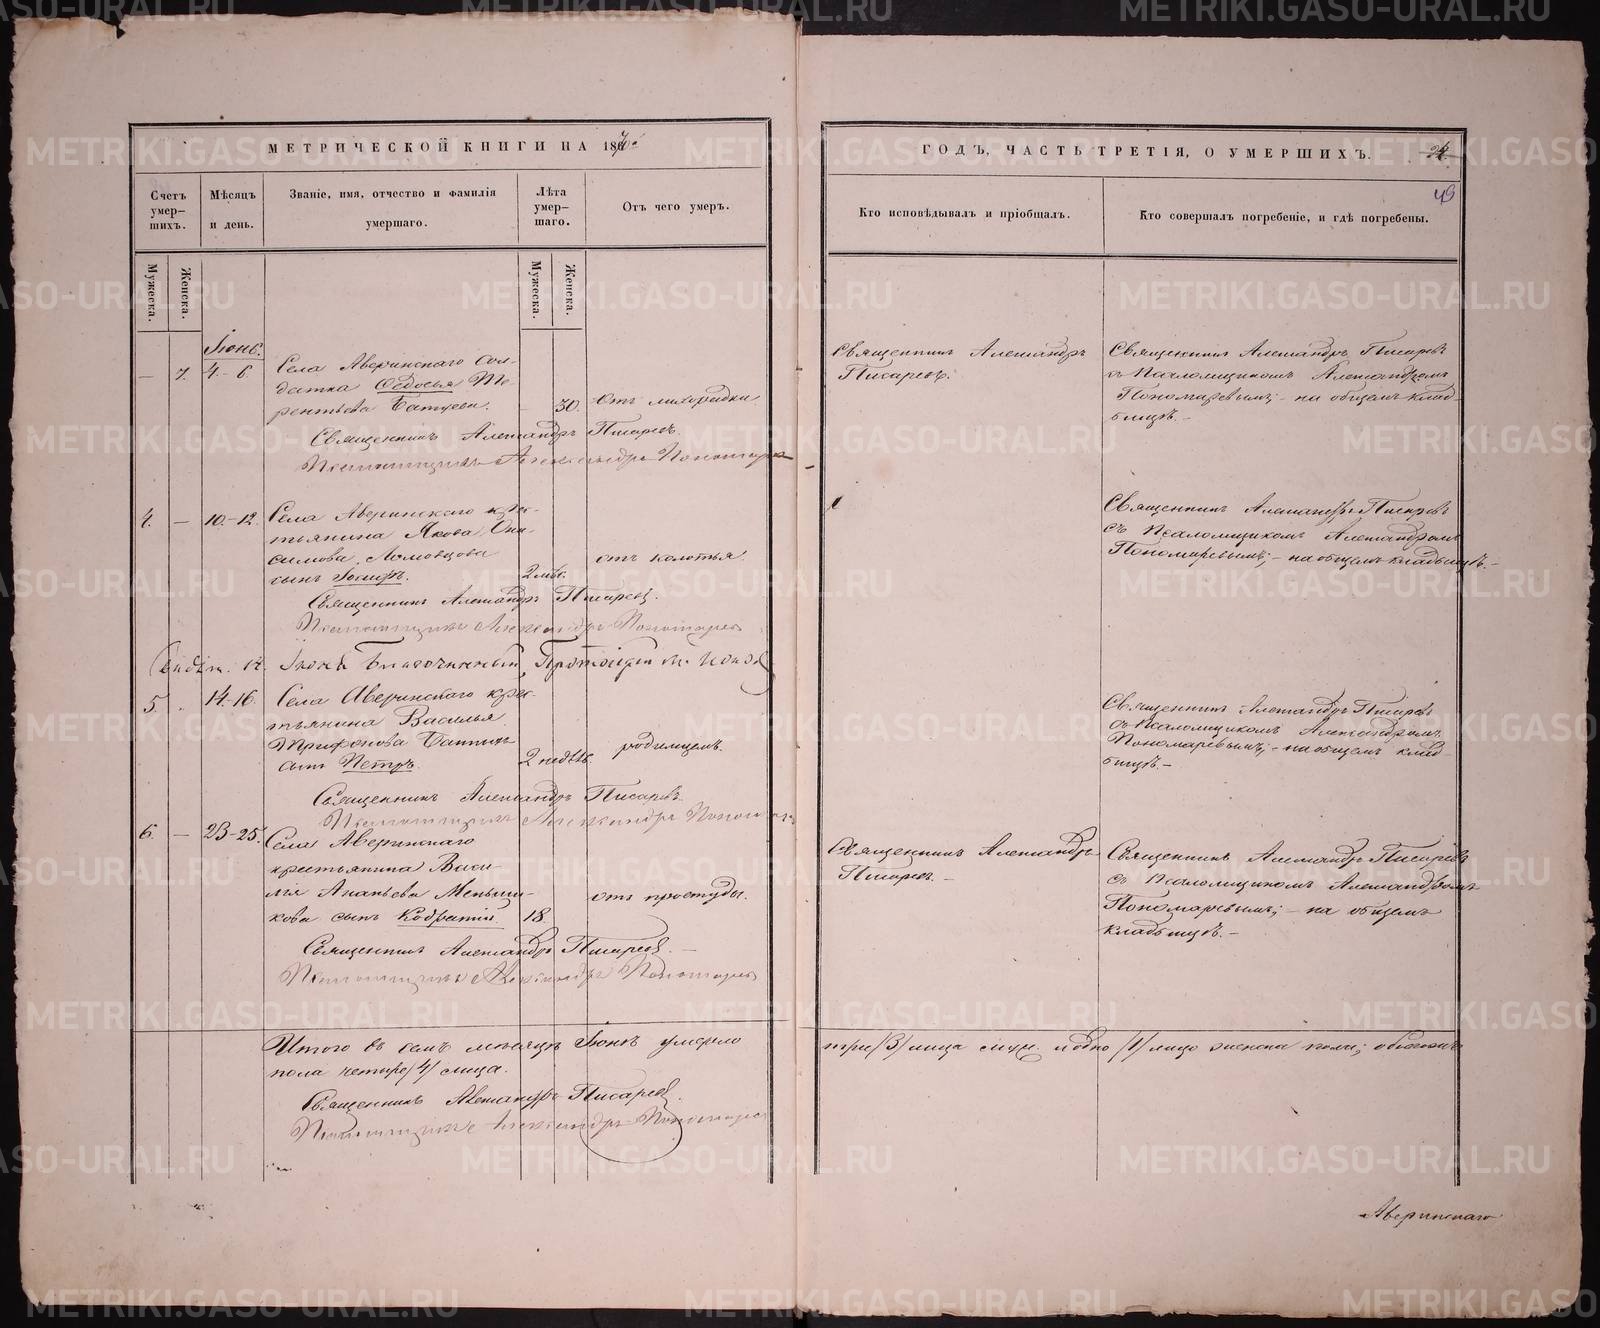 МЕТРИЧЕСКОЙ КНИГИ НА 1870
Счетъ умер-шихъ.
Мѣсяцъ и день.
Званіе, имя, отчество и фамилія умершаго.
Лѣта умер-шаго.
Отъ чего умеръ.
Мужеска.
Женска.
Мужеска.
Женска.
Іюнь.
— 7. 4.-6. Села Аверинскаго сол-
датка Ѳедосья Те-
рентьева Батуева. - 30. отъ лихорадки
Священникъ Александръ Писаревъ.
Псаломщикъ Александръ Пономаревъ
4. — 10.-12. Села Аверинскаго крес-
тьянина Якова Они-
симова Ломовцова отъ колотья.
сынъ Іосифъ. 2 мѣс.
Священникъ Александръ Писаревъ.
Псаломщикъ Александръ Пономаревъ
Іюня Благочинный Протоіерей
5. 14.-16. Села Аверинскаго крес-
тьянина Василья
Трифонова родимцемъ.
сынъ Петръ. 2 недѣль.
Священникъ Александръ Писаревъ
Псаломщикъ Александръ Пономаревъ
6. — 23-25. Села Аверинскаго
крестьянина Васи-
лія Ананьева Меньши- отъ простуды.
кова сынъ Кодратій. 18
Священникъ Александръ Писаревъ. —
Псаломщикъ Александръ Пономаревъ
Итого въ семъ мѣсяцѣ Іюнѣ умерло
пола четыре /4/ лица.
Священникъ Александръ Писаревъ.
Псаломщикъ Александръ Пономаревъ
ГОДЪ, ЧАСТЬ ТРЕТІЯ, О УМЕРШИХЪ.
49
Кто исповѣдывалъ и пріобщалъ.
Кто совершалъ погребеніе, и гдѣ погребены.
Священникъ Александръ
Писаревъ.
Священникъ Александръ Писаревъ
съ Псаломщикомъ Александромъ
Пономаревымъ; - на общемъ клад-
бищѣ. -
Священникъ Александръ Писаревъ
съ Псаломщикомъ Александромъ
Пономаревымъ; - на общемъ кладбищѣ. -
Священникъ Александръ Писаревъ
съ Псаломщикомъ Александромъ
Пономаревымъ; - на общемъ клад-
бищѣ. -
Священникъ Александръ
Писаревъ. -
Священникъ Александръ Писаревъ
съ Псаломщикомъ Александромъ
Пономаревымъ; - на общемъ
кладбищѣ. -
три /3/ лица муж. и одно /1/ лицо женска пола; обоего
Аверинскаго
METRIKI.GASO-URAL.RU